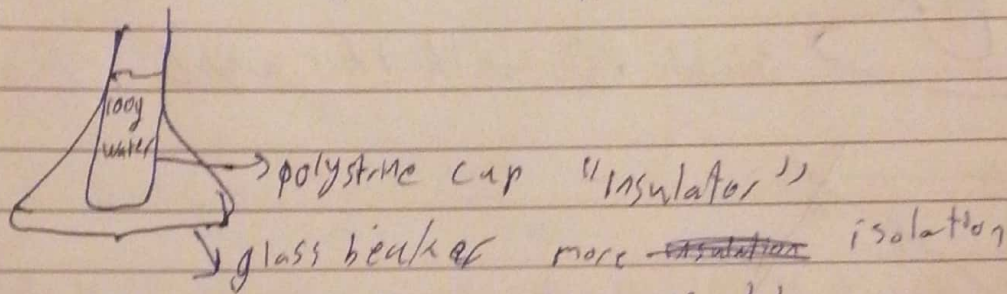 100g
water
polystrine cup "insulator"
glass beaker more insulation isolation